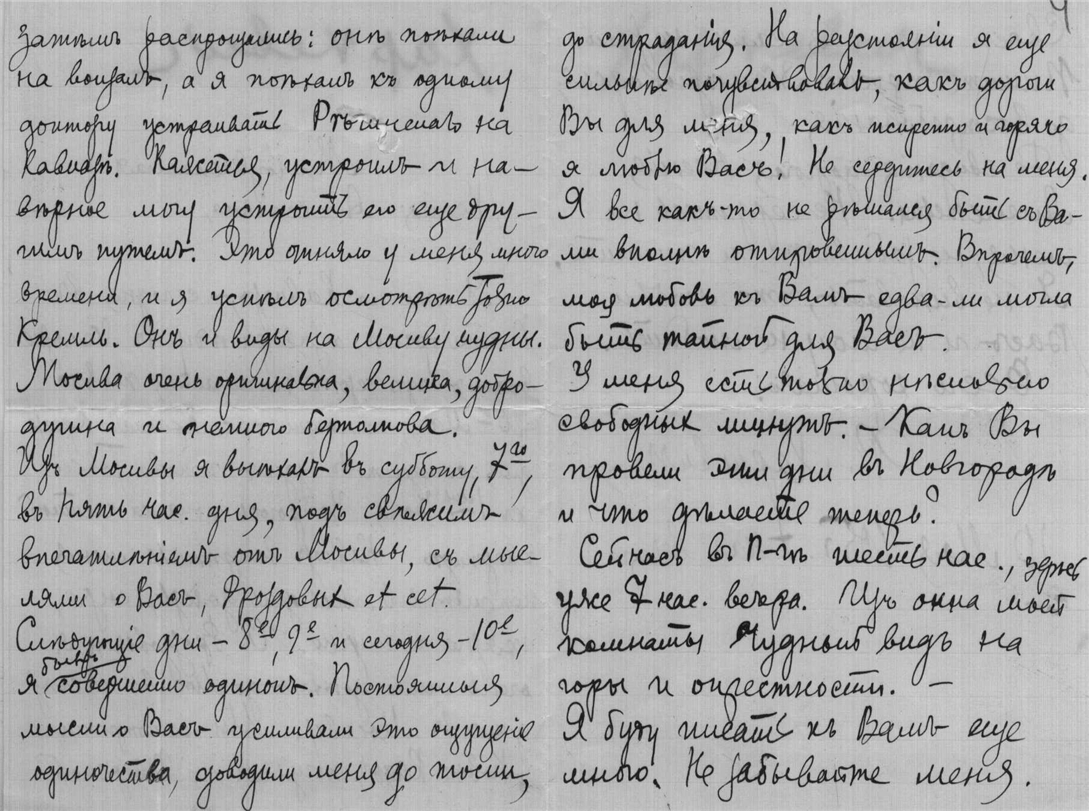 затѣмъ распрощались: онѣ поѣхали
на вокзалъ, а я поѣхалъ къ одному
доктору устраивать Ртищенаго на
Кавказъ. Кажется, устроилъ и на-
вѣрное могу устроить его еще дру-
гимъ путемъ. Это отняло у меня много
времени, и я успѣлъ осмотрѣть только
Кремль. Онъ и виды на Москву чудны.
Москва очень оригинальна, велика, добро-
душна и немного безтолкова.
Изъ Москвы я выѣхалъ въ субботу, 7го,
въ пять час. дня, подъ свѣжимъ
впечатлѣніемъ отъ Москвы, съ мыс-
лями о Васъ, Дроздовых et cet.
Слѣдующіе дни – 8е, 9е и сегодня – 10е,
я былъ совершенно одинокъ. Постоянныя
мысли о Васъ усиливали это ощущеніе
одиночества, доводили меня до тоски,
до страданія. На разстояніи я еще
сильнѣе почувствовалъ, какъ дороги
Вы для меня, какъ искренно и горячо
я люблю Васъ! Не сердитесь на меня.
Я все какъ-то не рѣшался быть съ Ва-
ми вполнѣ откровеннымъ. Впрочемъ,
моя любовь къ Вамъ едва-ли могла
быть тайной для Васъ.
У меня есть только нѣсколько
свободных минутъ. – Какъ Вы
провели эти дни въ Новгородѣ
и что дѣлаете теперь?
Сейчасъ въ П-гѣ шесть час., здѣсь
уже 7 час. вечера. Изъ окна моей
комнаты чудный видъ на
горы и окрестности. –
Я буду писать къ Вамъ еще
много. Не забывайте меня.